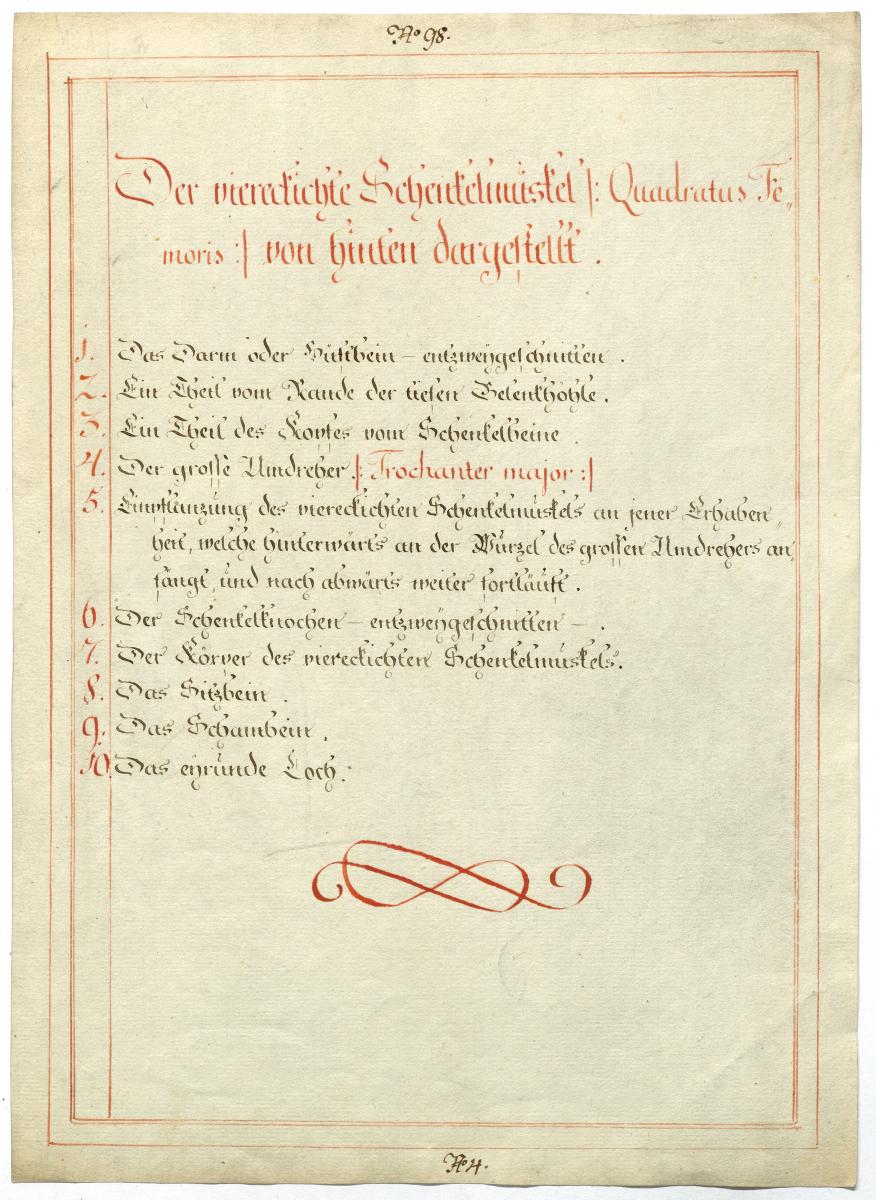 No 98.
Der viereckichte Schenkelmuskel /: Quadratus Fe„
moris :/ von hinten dargestellt .
1. Das Darm oder Hüftbein – entzweygeschnitten .
2. Ein Theil vom Rande der tiefen Gelenkhöhle .
3. Ein Theil des Kopfes vom Schenkelbeine .
4. Der grosse Umdreher /: Trochanter major :/
5. Einpflanzung des viereckichten Schenkelmuskels an jener Erhaben„
heit, welche hinterwärts an der Wurzel des grossen Umdrehers an„
fängt, und nach abwärts weiter fortläuft .
6. Der Schenkelknochen – entzweygeschnitten – .
7. Der Körper des viereckichten Schenkelmuskels.
8. Das Sitzbein .
9. Das Schambein .
10. Das eyrunde Loch .
No 4.